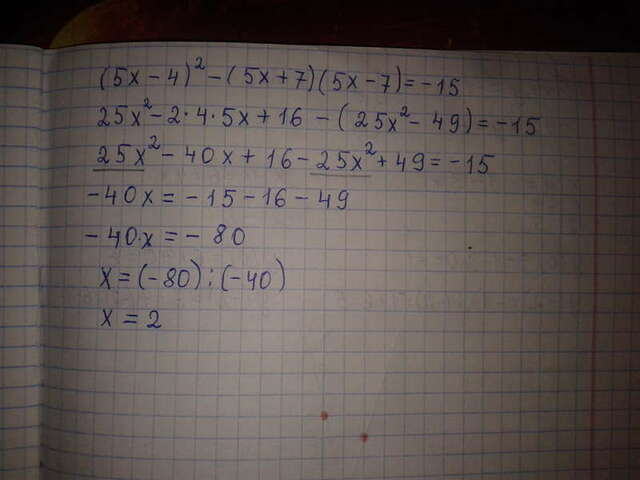 (5x - 4)² - (5x + 7)(5x - 7) = -15
25x² - 2 · 4 · 5x + 16 - (25x² - 49) = -15
25x² - 40x + 16 - 25x² + 49 = -15
-40x = -15 - 16 - 49
-40·x = -80
x = (-80) : (-40)
x = 2